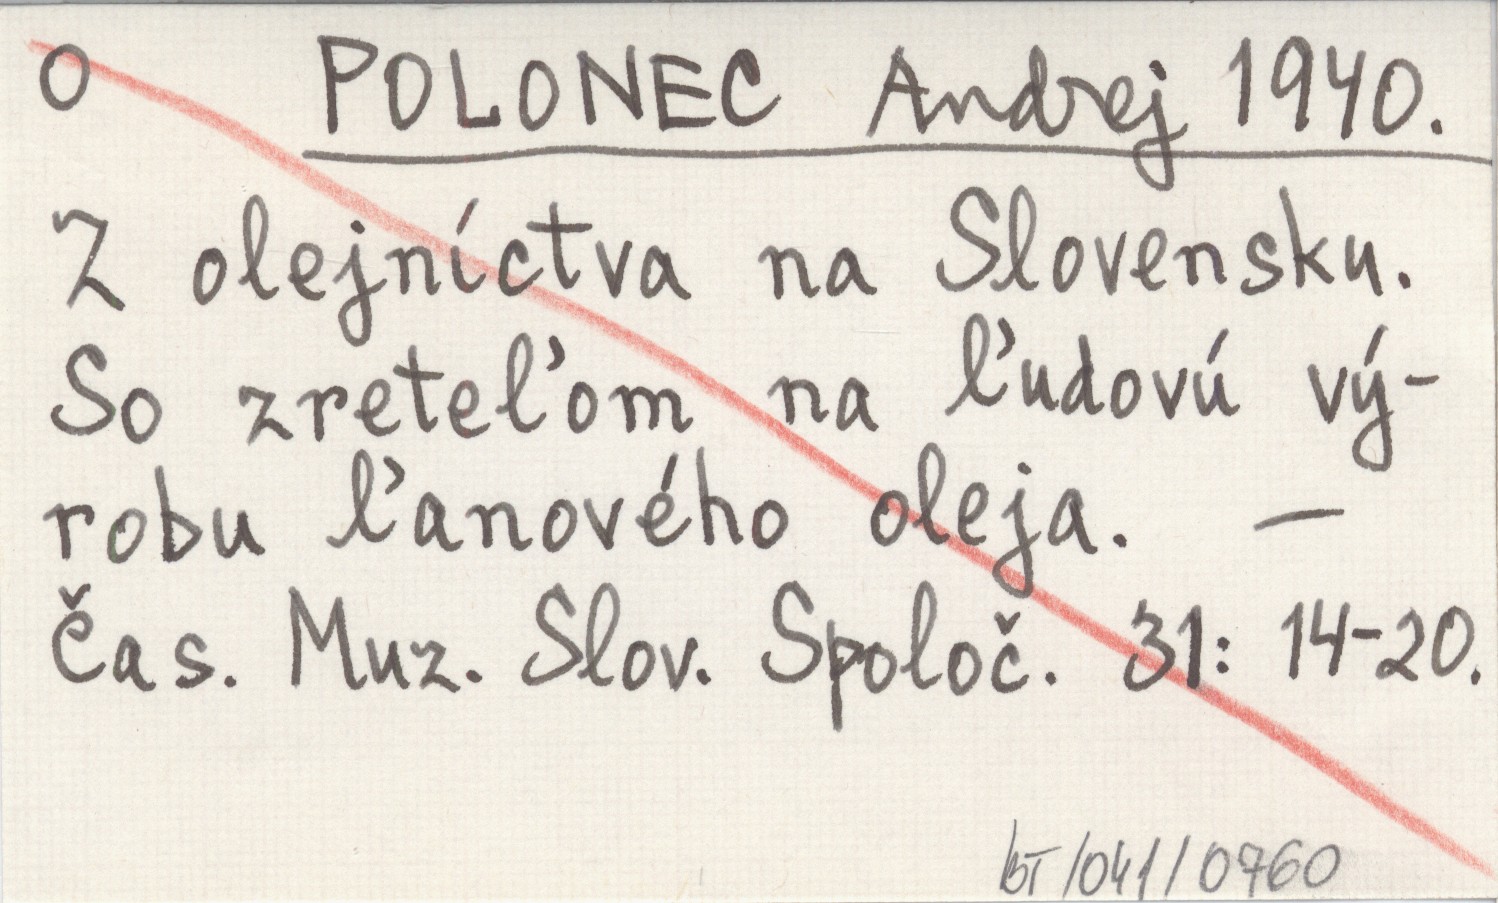 O POLONEC Andrej 1940.
Z olejníctva na Slovensku.
So zreteľom na ľudovú vý-
robu ľanového oleja. —
Čas. Muz. Slov. Spoloč. 31: 14-20.
BT/041/0760